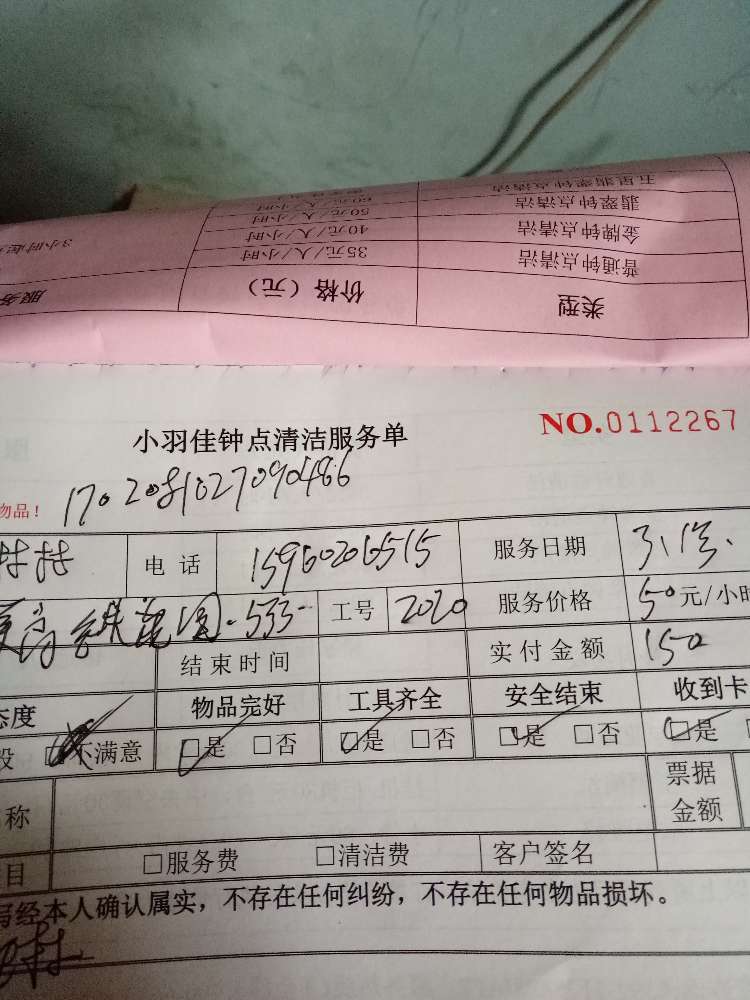 五星翡翠钟点清洁 60元/人/小时
翡翠钟点清洁 50元/人/小时
金牌钟点清洁 40元/人/小时 3小时起
普通钟点清洁 35元/人/小时
类型 价格（元） 服务
NO.0112267
小羽佳钟点清洁服务单
1702081027090486
物品！
电 话 15960206515 服务日期
533 工号 2020 服务价格 50元/小时
结束时间 实付金额 150
态度 物品完好 工具齐全 安全结束 收到卡
般 不满意 □是 □否 □是 □否 □是 □否 □是
称 票据金额
目 □服务费 □清洁费 客户签名
写经本人确认属实，不存在任何纠纷，不存在任何物品损坏。